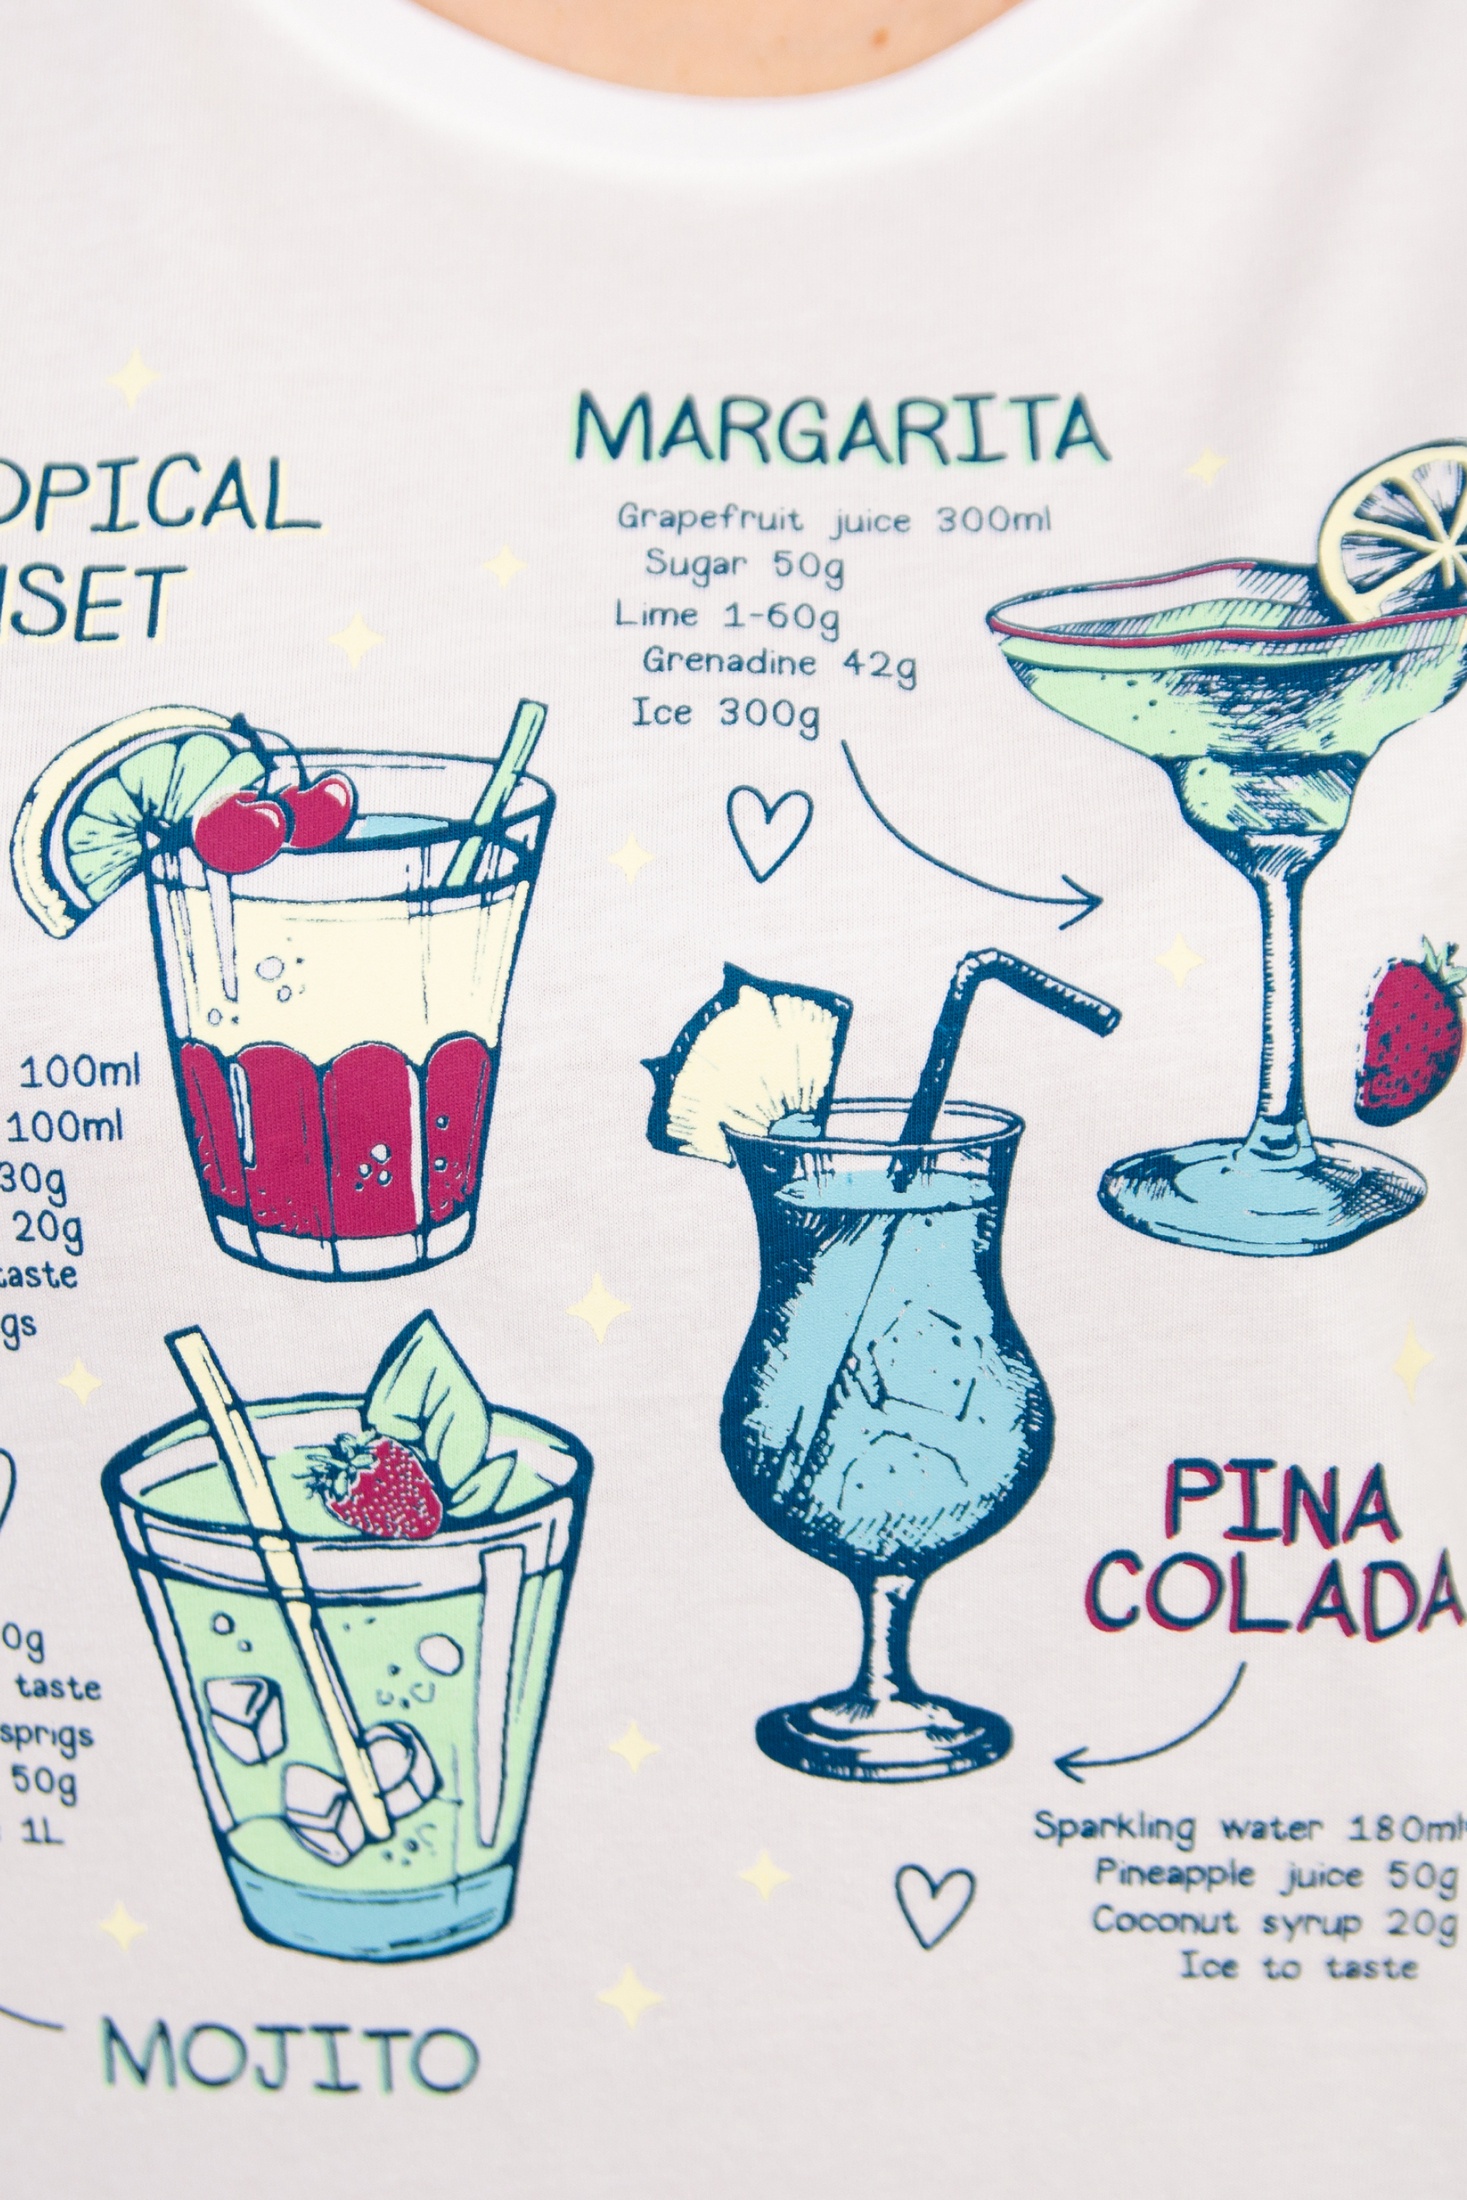 OPICAL
SET
100ml
100ml
30g
20g
taste
gs
MARGARITA
Grapefruit juice 300ml
Sugar 50g
Lime 1-60g
Grenadine 42g
Ice 300g
0g
taste
sprigs
50g
1L
MOJITO
PINA
COLADA
Sparkling water 180ml
Pineapple juice 50g
Coconut syrup 20g
Ice to taste